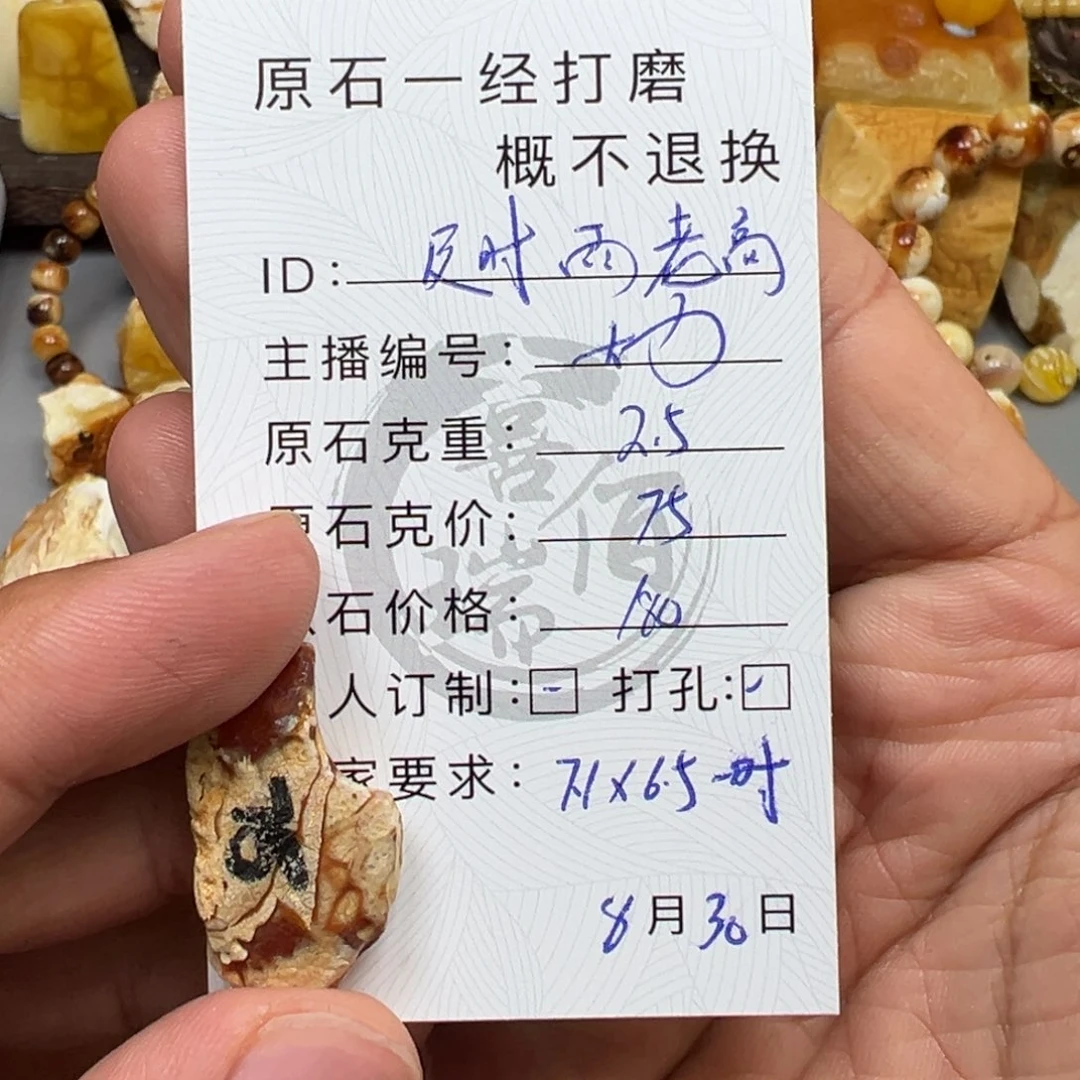 原石一经打磨
概不退换
ID：及时雨老高
主播编号：
原石克重：2.5
原石克价：75
石价格：180
人订制： 打孔：
家要求：7.1×6.5 时
8月30日
喜佰瑞